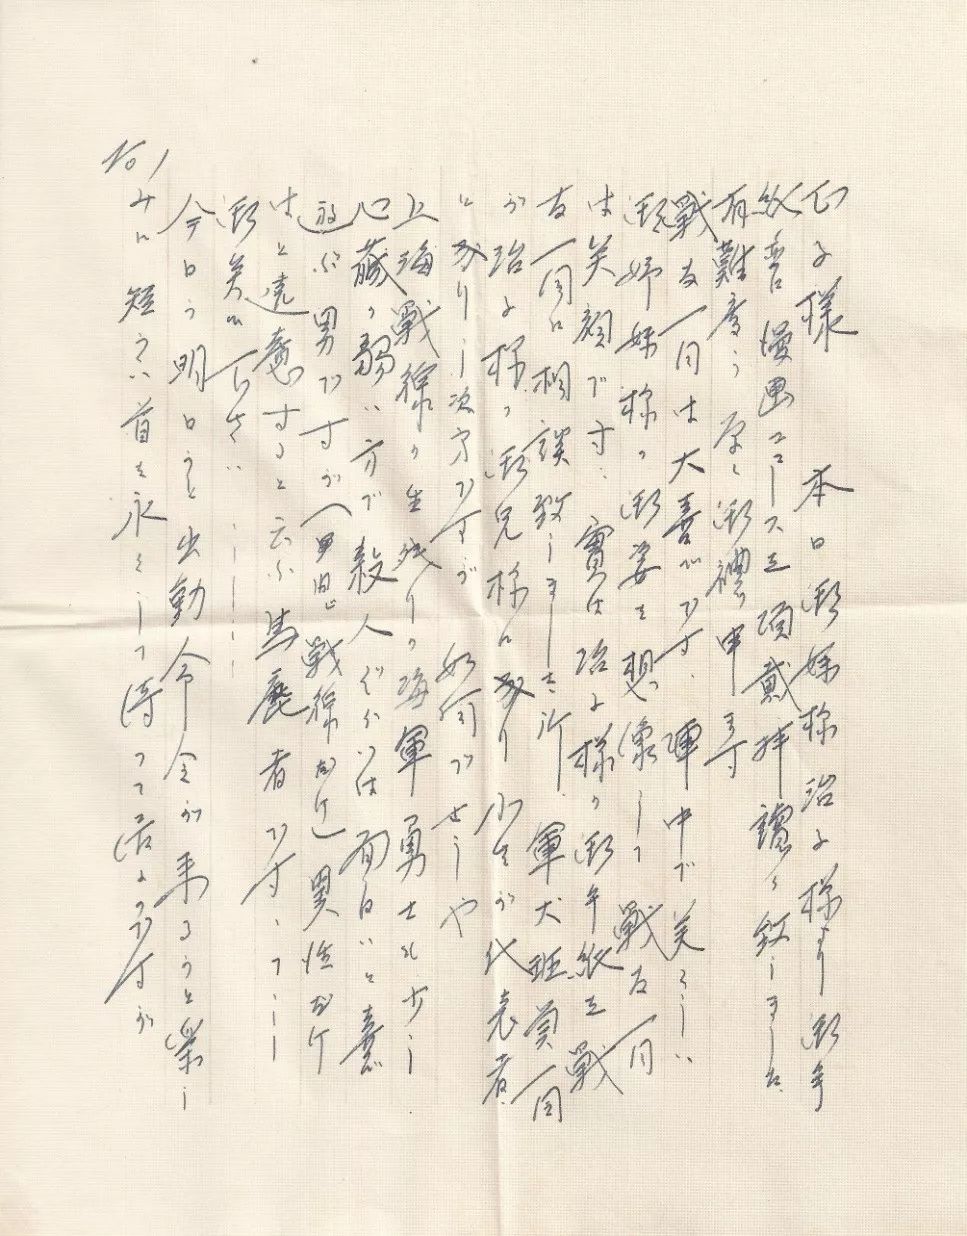 子様 本日御妹様治子様より御手
紙並に漫画ニュースを頂戴拝讀致しました
有難度う 厚く御禮申ます
戦友一同は大喜びです、陣中で美くしい
御姉妹様の御姿を想像して 戦友一同
は笑顔です、實は治子様の御手紙を戦
友一同に相談致しました所、軍犬班員一同
が治子様の御兄様になり 小生が代表者
となりし次第ですが 如何でせうや
上海戦線の生残りの海軍勇士れ少し
心蔵の弱い方で殺人ぐらいは面白いと喜
遊ぶ男ですが 戦線だけ 異性だけ
はと遠慮すると云ふ馬鹿者です、
御笑い下さい
今日か明日かと出動命令が来るかと楽し
みに短かい首を永くして待って居るのですが
No 1